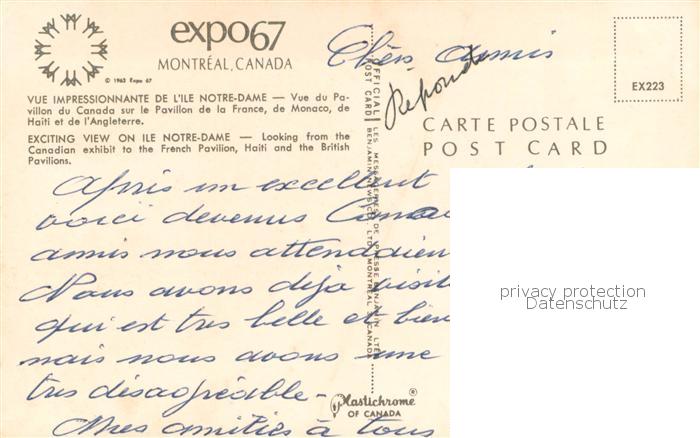 expo67
MONTRÉAL, CANADA
© 1963 Expo 67
VUE IMPRESSIONNANTE DE L'ILE NOTRE-DAME — Vue du Pa-
villon du Canada sur le Pavillon de la France, de Monaco, de
Haïti et de l'Angleterre.
EXCITING VIEW ON ILE NOTRE-DAME — Looking from the
Canadian exhibit to the French Pavilion, Haiti and the British
Pavilions.
Chers amis
Repondu
EX223
CARTE POSTALE
POST CARD
OFFICIAL POST CARD
LES MESSAGERIES DE PRESSE BENJAMIN LTEE
BENJAMIN NEWS CO. LTD. MONTREAL CANADA
Après un excellent
voici devenus Cana
amis nous attendaien
Nous avons déjà visit
qui est très belle et bien
mais nous avons une
très désagréable -
Mes amitiés à tous
Plastichrome®
OF CANADA
privacy protection
Datenschutz